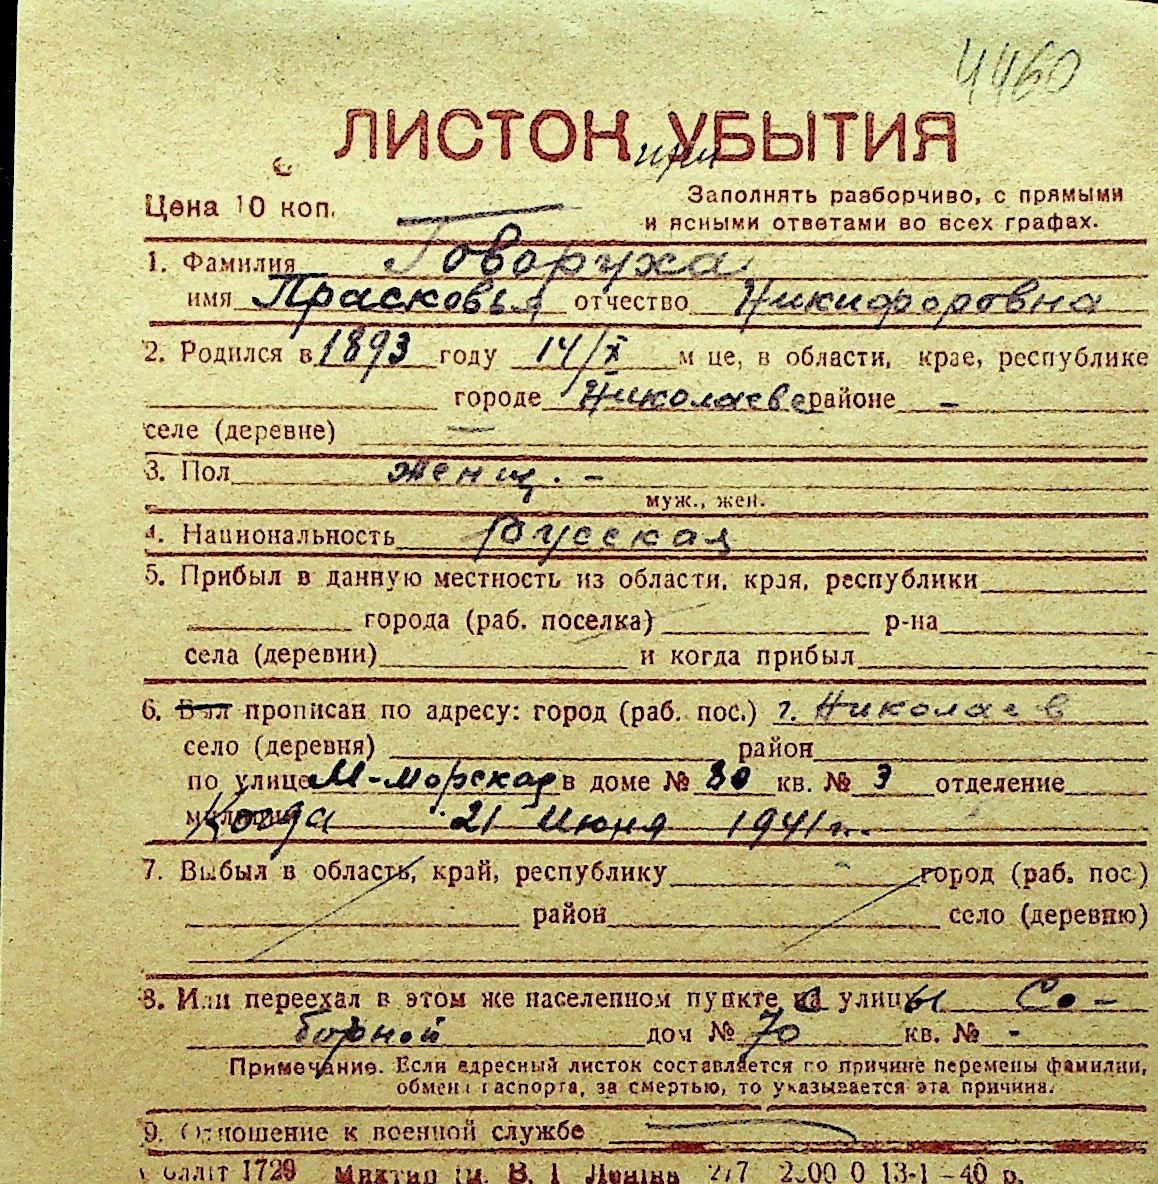 4460
ЛИСТОК УБЫТИЯ
при
Цена 10 коп.
Заполнять разборчиво, с прямыми
и ясными ответами во всех графах.
1. Фамилия Говоруха
имя Прасковья отчество Никифоровна
2. Родился в 1893 году 14/X м це, в области, крае, республике
городе Николаеве районе -
селе (деревне) —
3. Пол женщ. -
муж., жен.
4. Национальность Русская
5. Прибыл в данную местность из области, края, республики
города (раб. поселка) р-на
села (деревни) и когда прибыл
6. Был прописан по адресу: город (раб. пос.) г. Николаев
село (деревня) район
по улице М-Морская в доме № 80 кв. № 3 отделение
милиции Когда 21 Июня 1941 г.
7. Выбыл в область, край, республику город (раб. пос)
район село (деревню)
8. Или переехал в этом же населенном пункте с улицы Со-
борной дом № 70 кв. № -
Примечание. Если адресный листок составляется по причине перемены фамилии,
обмена паспорта, за смертью, то указывается эта причина.
9. Отношение к военной службе
1729 В. І. Леніна 2/7 13-1-40 р.